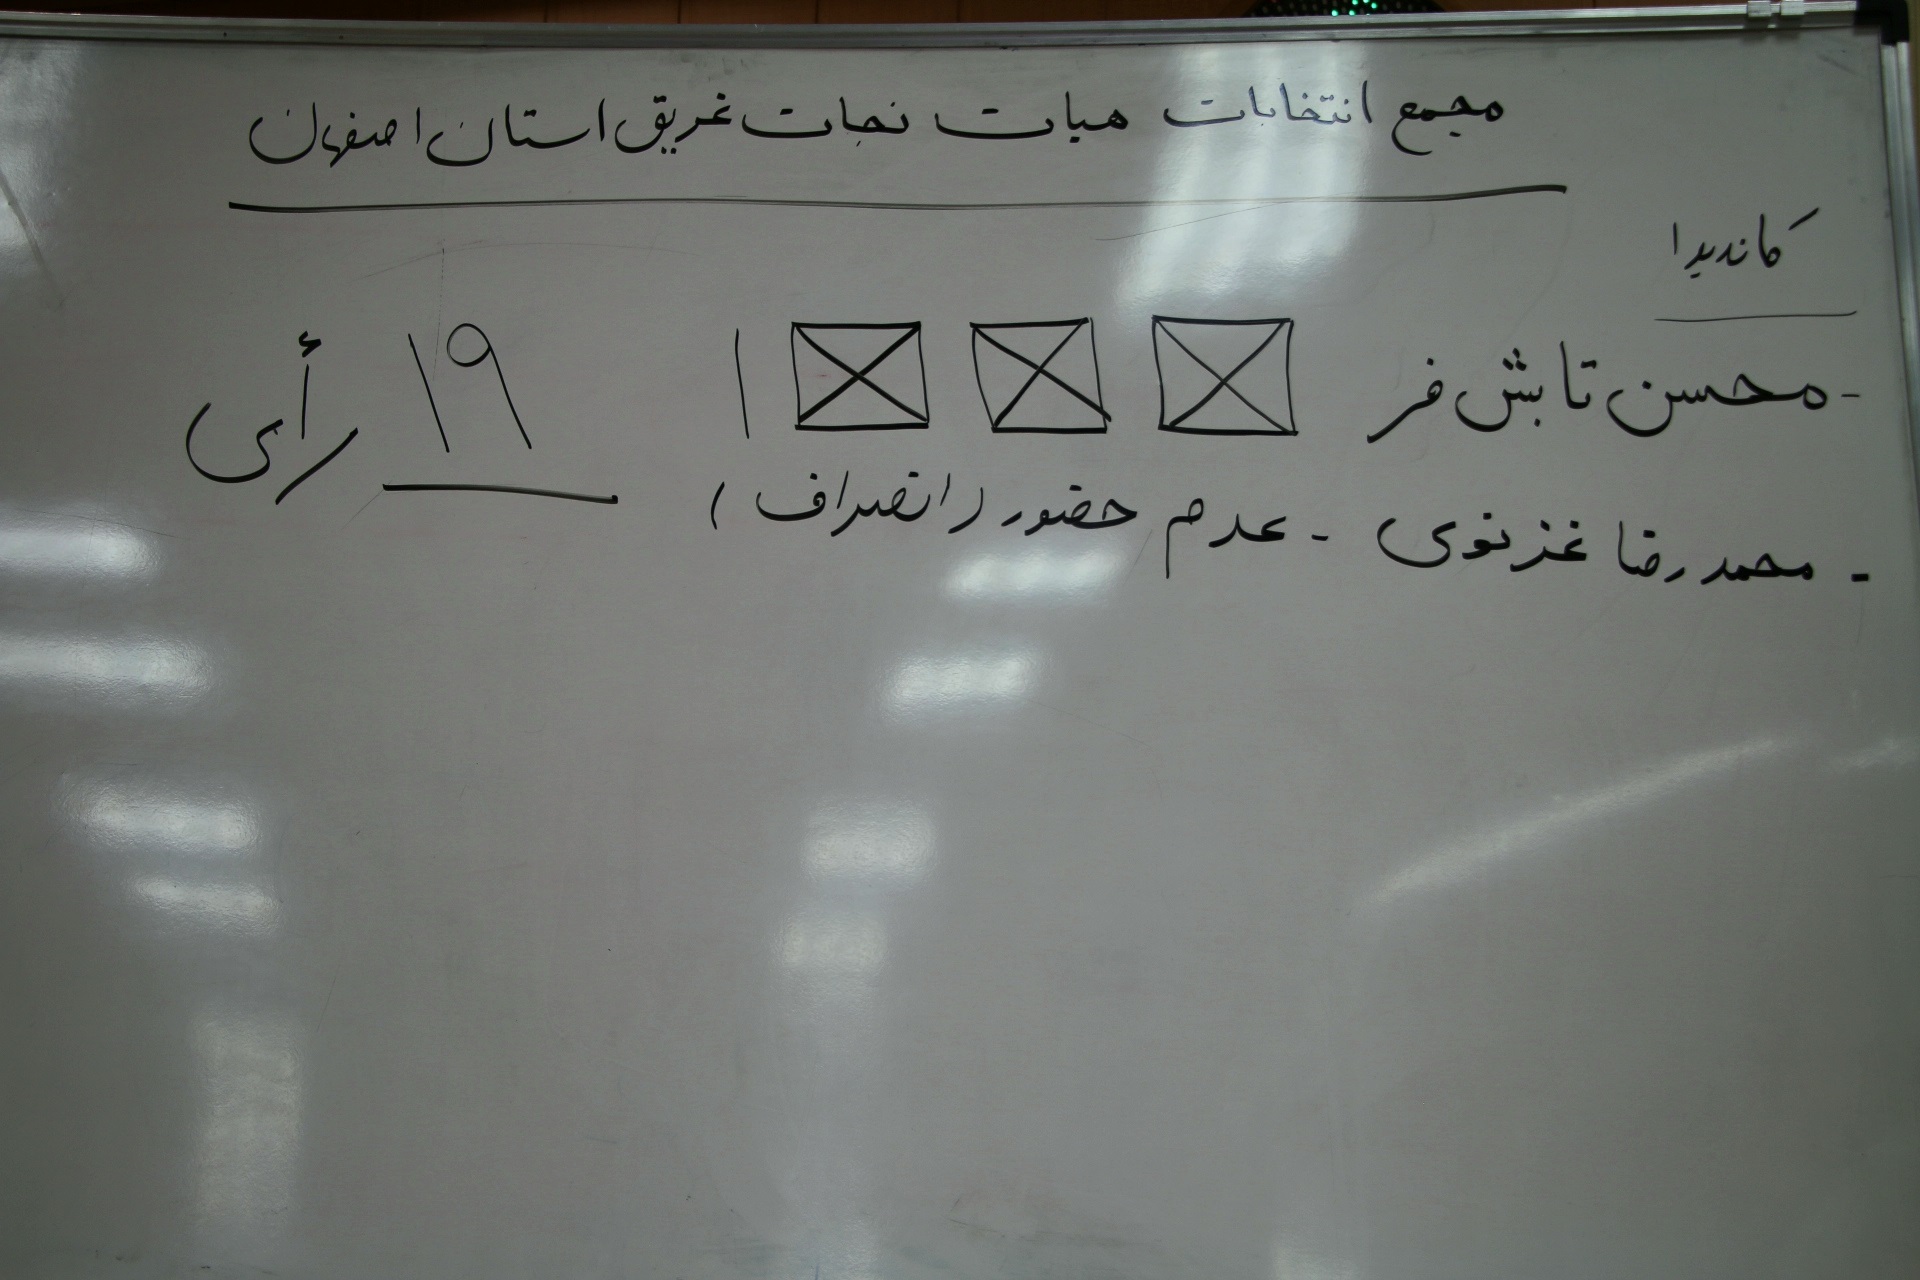 مجمع انتخابات هیات نجات غریق استان اصفهان
کاندیدا
- محسن تابش فر ۱ ۱۹ رأی
- محمدرضا غزنوی - عدم حضور (انصراف)